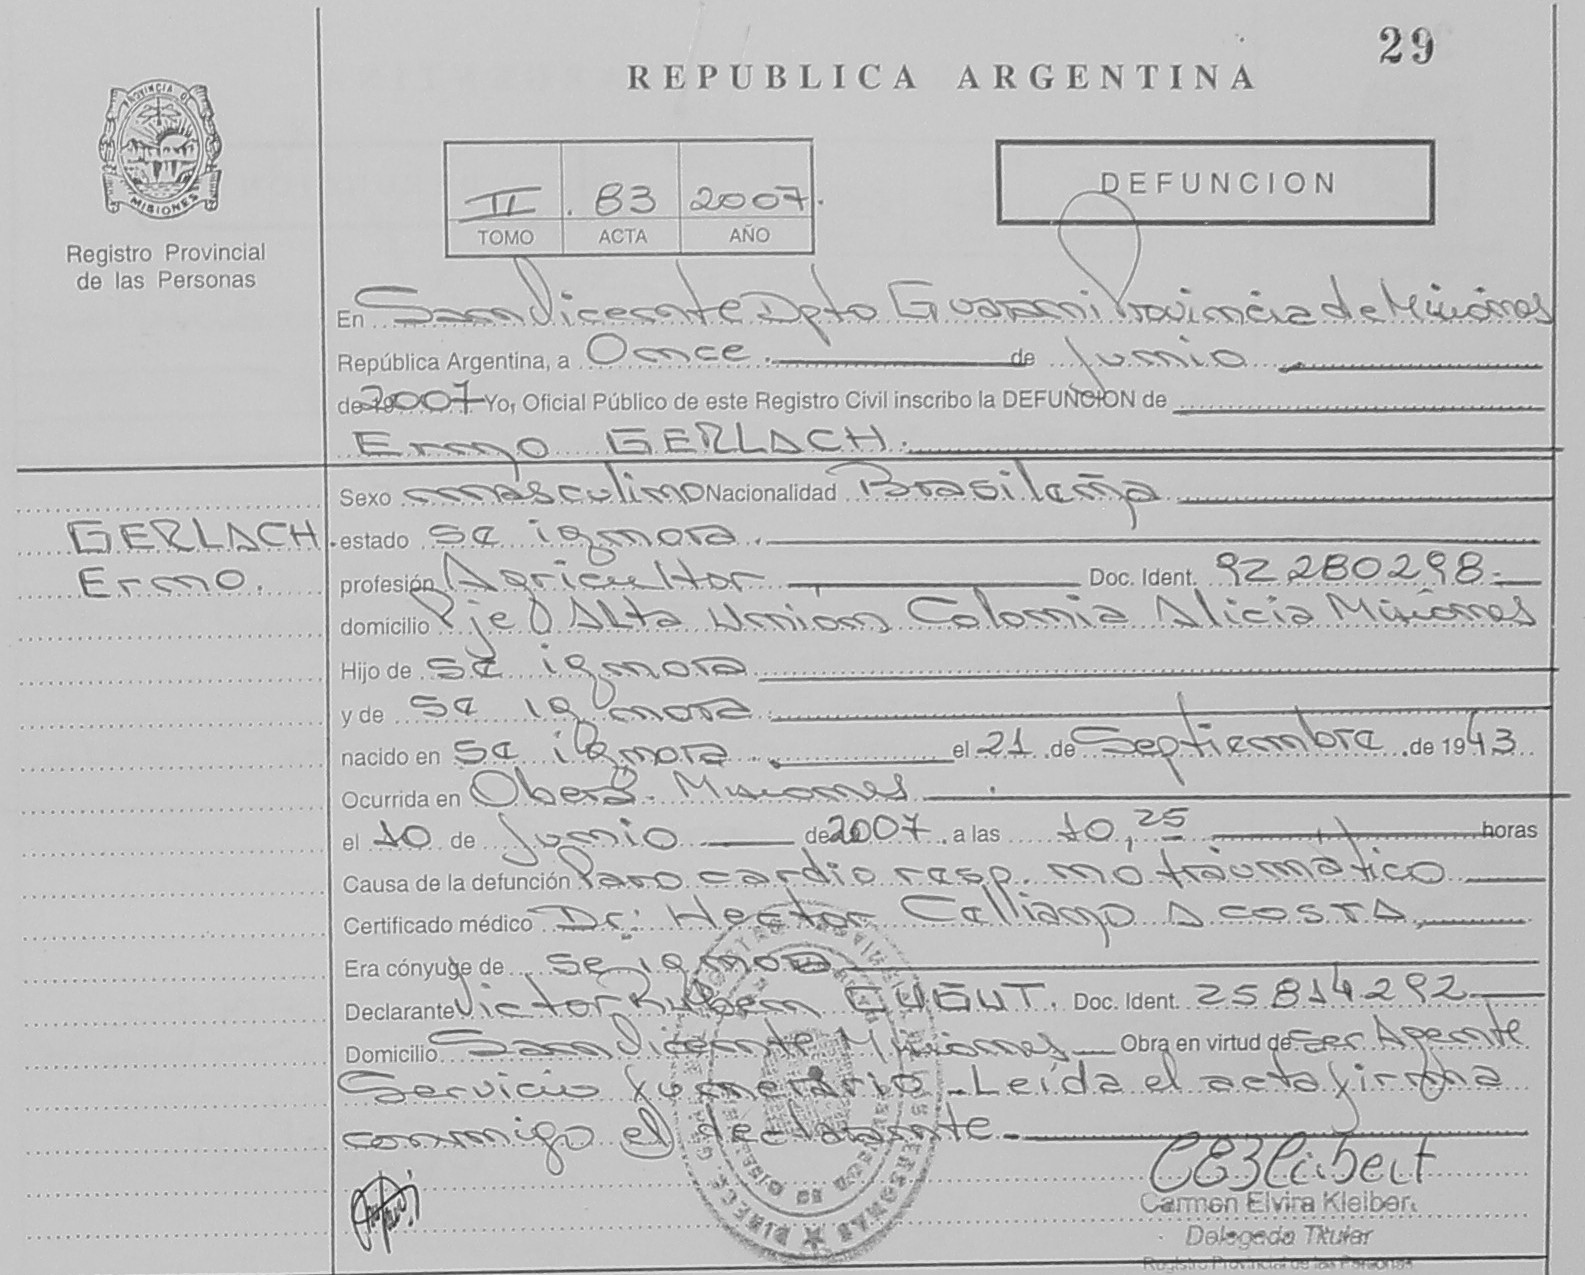 29
REPUBLICA ARGENTINA
PROVINCIA DE
MISIONES
Registro Provincial
de las Personas
II . 83 2007.
TOMO ACTA AÑO
DEFUNCION
En San Vicente Dpto Guarani Provincia de Misiones
República Argentina, a Once. de Junio
de 2007 Yo, Oficial Público de este Registro Civil inscribo la DEFUNCION de
Ermo GERLACH.
Sexo masculino Nacionalidad Brasileña
GERLACH
Ermo.
estado se ignora.
profesión Agricultor Doc. Ident. 92280298.
domicilio Pje Alta Union Colonia Alicia Misiones
Hijo de se ignora
y de se ignora
nacido en se ignora el 21 de Septiembre de 1943
Ocurrida en Oberá. Misiones
el 10 de Junio de 2007 a las 10,25 horas
Causa de la defunción Paro cardio resp. no traumatico
Certificado médico Dr. Hector Acosta
Era cónyuge de se ignora
Declarante Victor Ruben Doc. Ident. 25814292
Domicilio San Vicente Misiones Obra en virtud de ser Agente
Servicio funerario. Leída el acta firma
conmigo el declarante.
Carmen Elvira Kleiber
Delegada Titular
Registro Provincial de las Personas